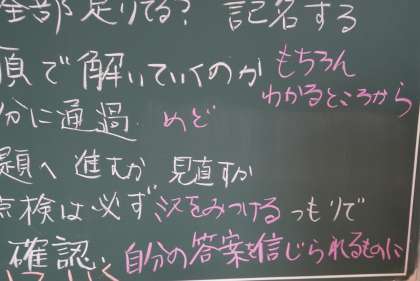 全部足りてる? 記名する
順で解いていくのか もちろん
わかるところから
分に通過 めど
題へ 進むか 見直すか
点検は必ず ミスをみつける つもりで
確認、自分の答案を信じられるものに